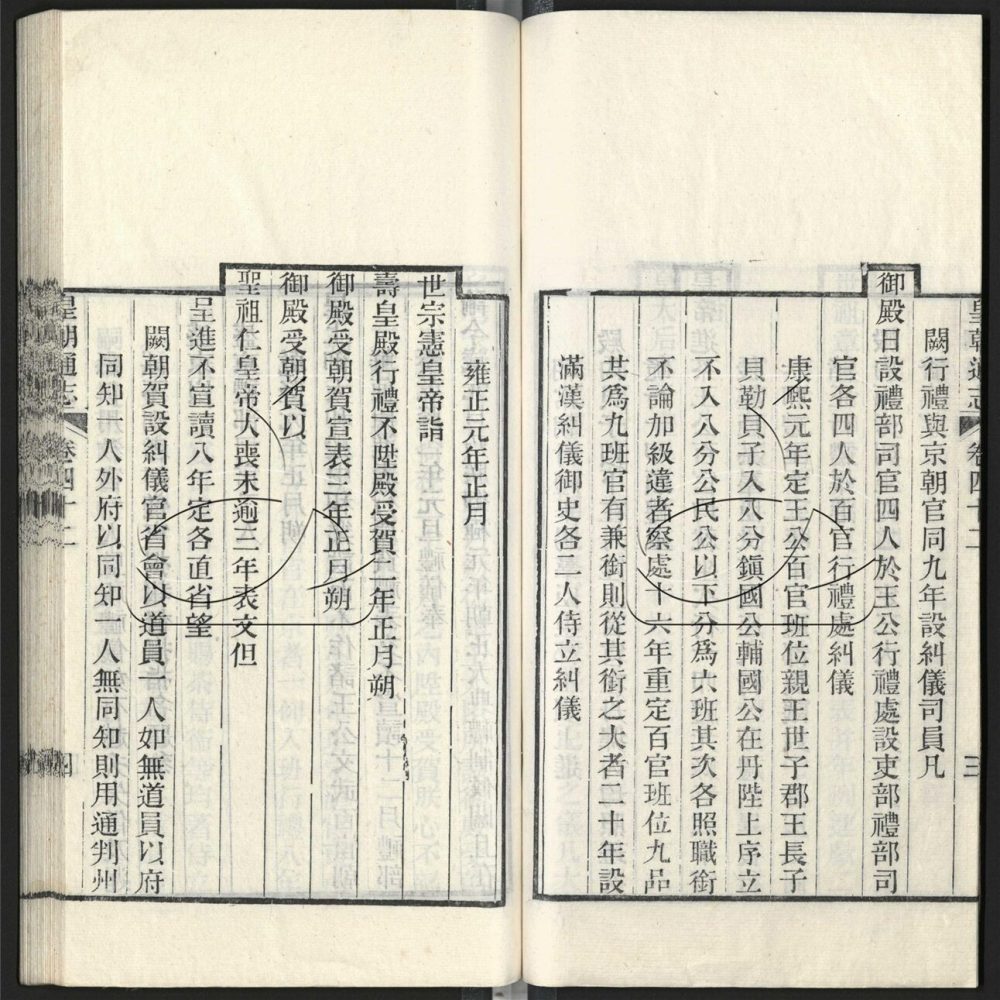 皇朝通志 卷四十二 三
闕行禮與京朝官同九年設糾儀司員凡
御殿日設禮部司官四人於王公行禮處設吏部禮部司
官各四人於百官行禮處糾儀
康熙元年定王公百官班位親王世子郡王長子
貝勒貝子入八分鎮國公輔國公在丹陛上序立
不入八分公民公以下分爲六班其次各照職銜
不論加級違者察處十六年重定百官班位九品
共爲九班官有兼銜則從其銜之大者二十年設
滿漢糾儀御史各二人侍立糾儀
雍正元年正月
世宗憲皇帝詣
壽皇殿行禮不陞殿受賀二年正月朔
御殿受朝賀宣表三年正月朔
御殿受朝賀以
聖祖仁皇帝大喪未逾三年表文但
呈進不宣讀八年定各直省望
闕朝賀設糾儀官省會以道員一人如無道員以府
同知一人外府以同知一人無同知則用通判州
皇朝通志 卷四十二 四